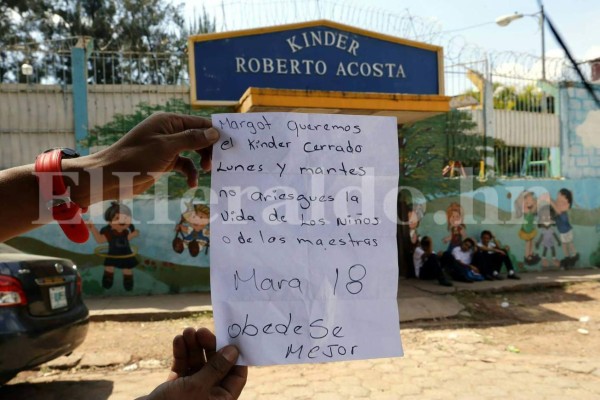 KINDER
ROBERTO ACOSTA
Margot Queremos
el Kinder Cerrado
Lunes Y mantes
no Ariesgues la
Vida de Los Niños
o de las maestras
Mara 18
obedese
Mejor
ElHeraldo.hn